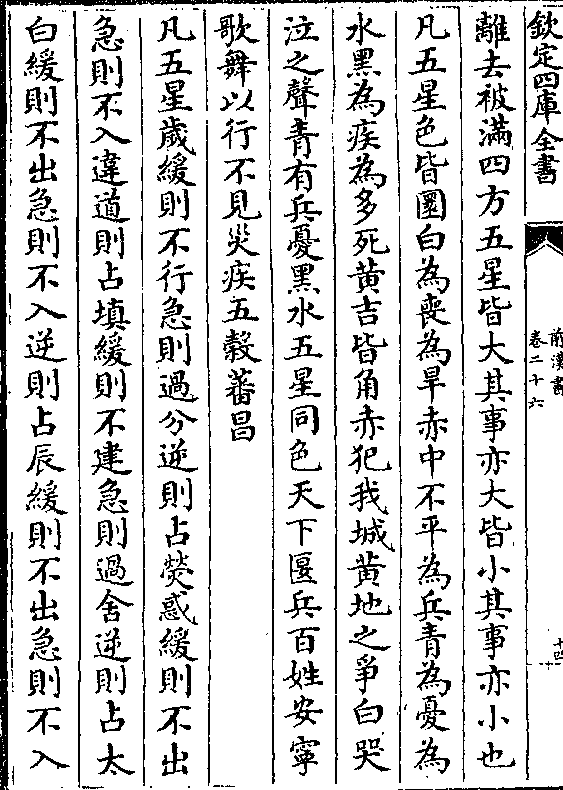 欽定四庫全書
前漢書
卷二十六
十四
離去被滿四方五星皆大其事亦大皆小其事亦小也
凡五星色皆圜白為喪為旱赤中不平為兵青為憂為
水黑為疾為多死黄吉皆角赤犯我城黄地之爭白哭
泣之聲青有兵憂黑水五星同色天下匽兵百姓安寧
歌舞以行不見災疾五穀蕃昌
凡五星歲緩則不行急則過分逆則占熒惑緩則不出
急則不入違道則占填緩則不建急則過舍逆則占太
白緩則不出急則不入逆則占辰緩則不出急則不入